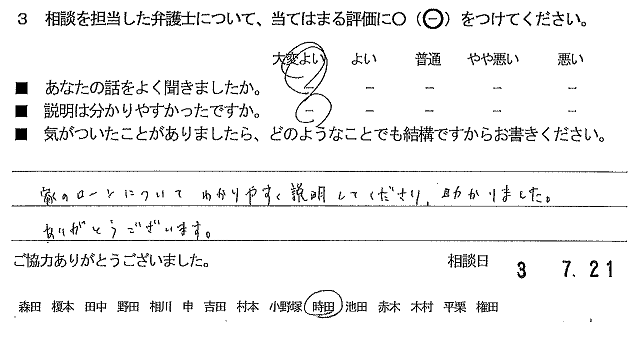 3 相談を担当した弁護士について、当てはまる評価に○（⊖）をつけてください。
大変よい よい 普通 やや悪い 悪い
■ あなたの話をよく聞きましたか。 － － － － －
■ 説明は分かりやすかったですか。 － － － － －
■ 気がついたことがありましたら、どのようなことでも結構ですからお書きください。
家のローンについて わかりやすく説明してくださり、助かりました。
ありがとうございます。
ご協力ありがとうございました。 相談日 3 7. 21
森田 榎本 田中 野田 相川 申 吉田 村本 小野塚 時田 池田 赤木 木村 平栗 権田